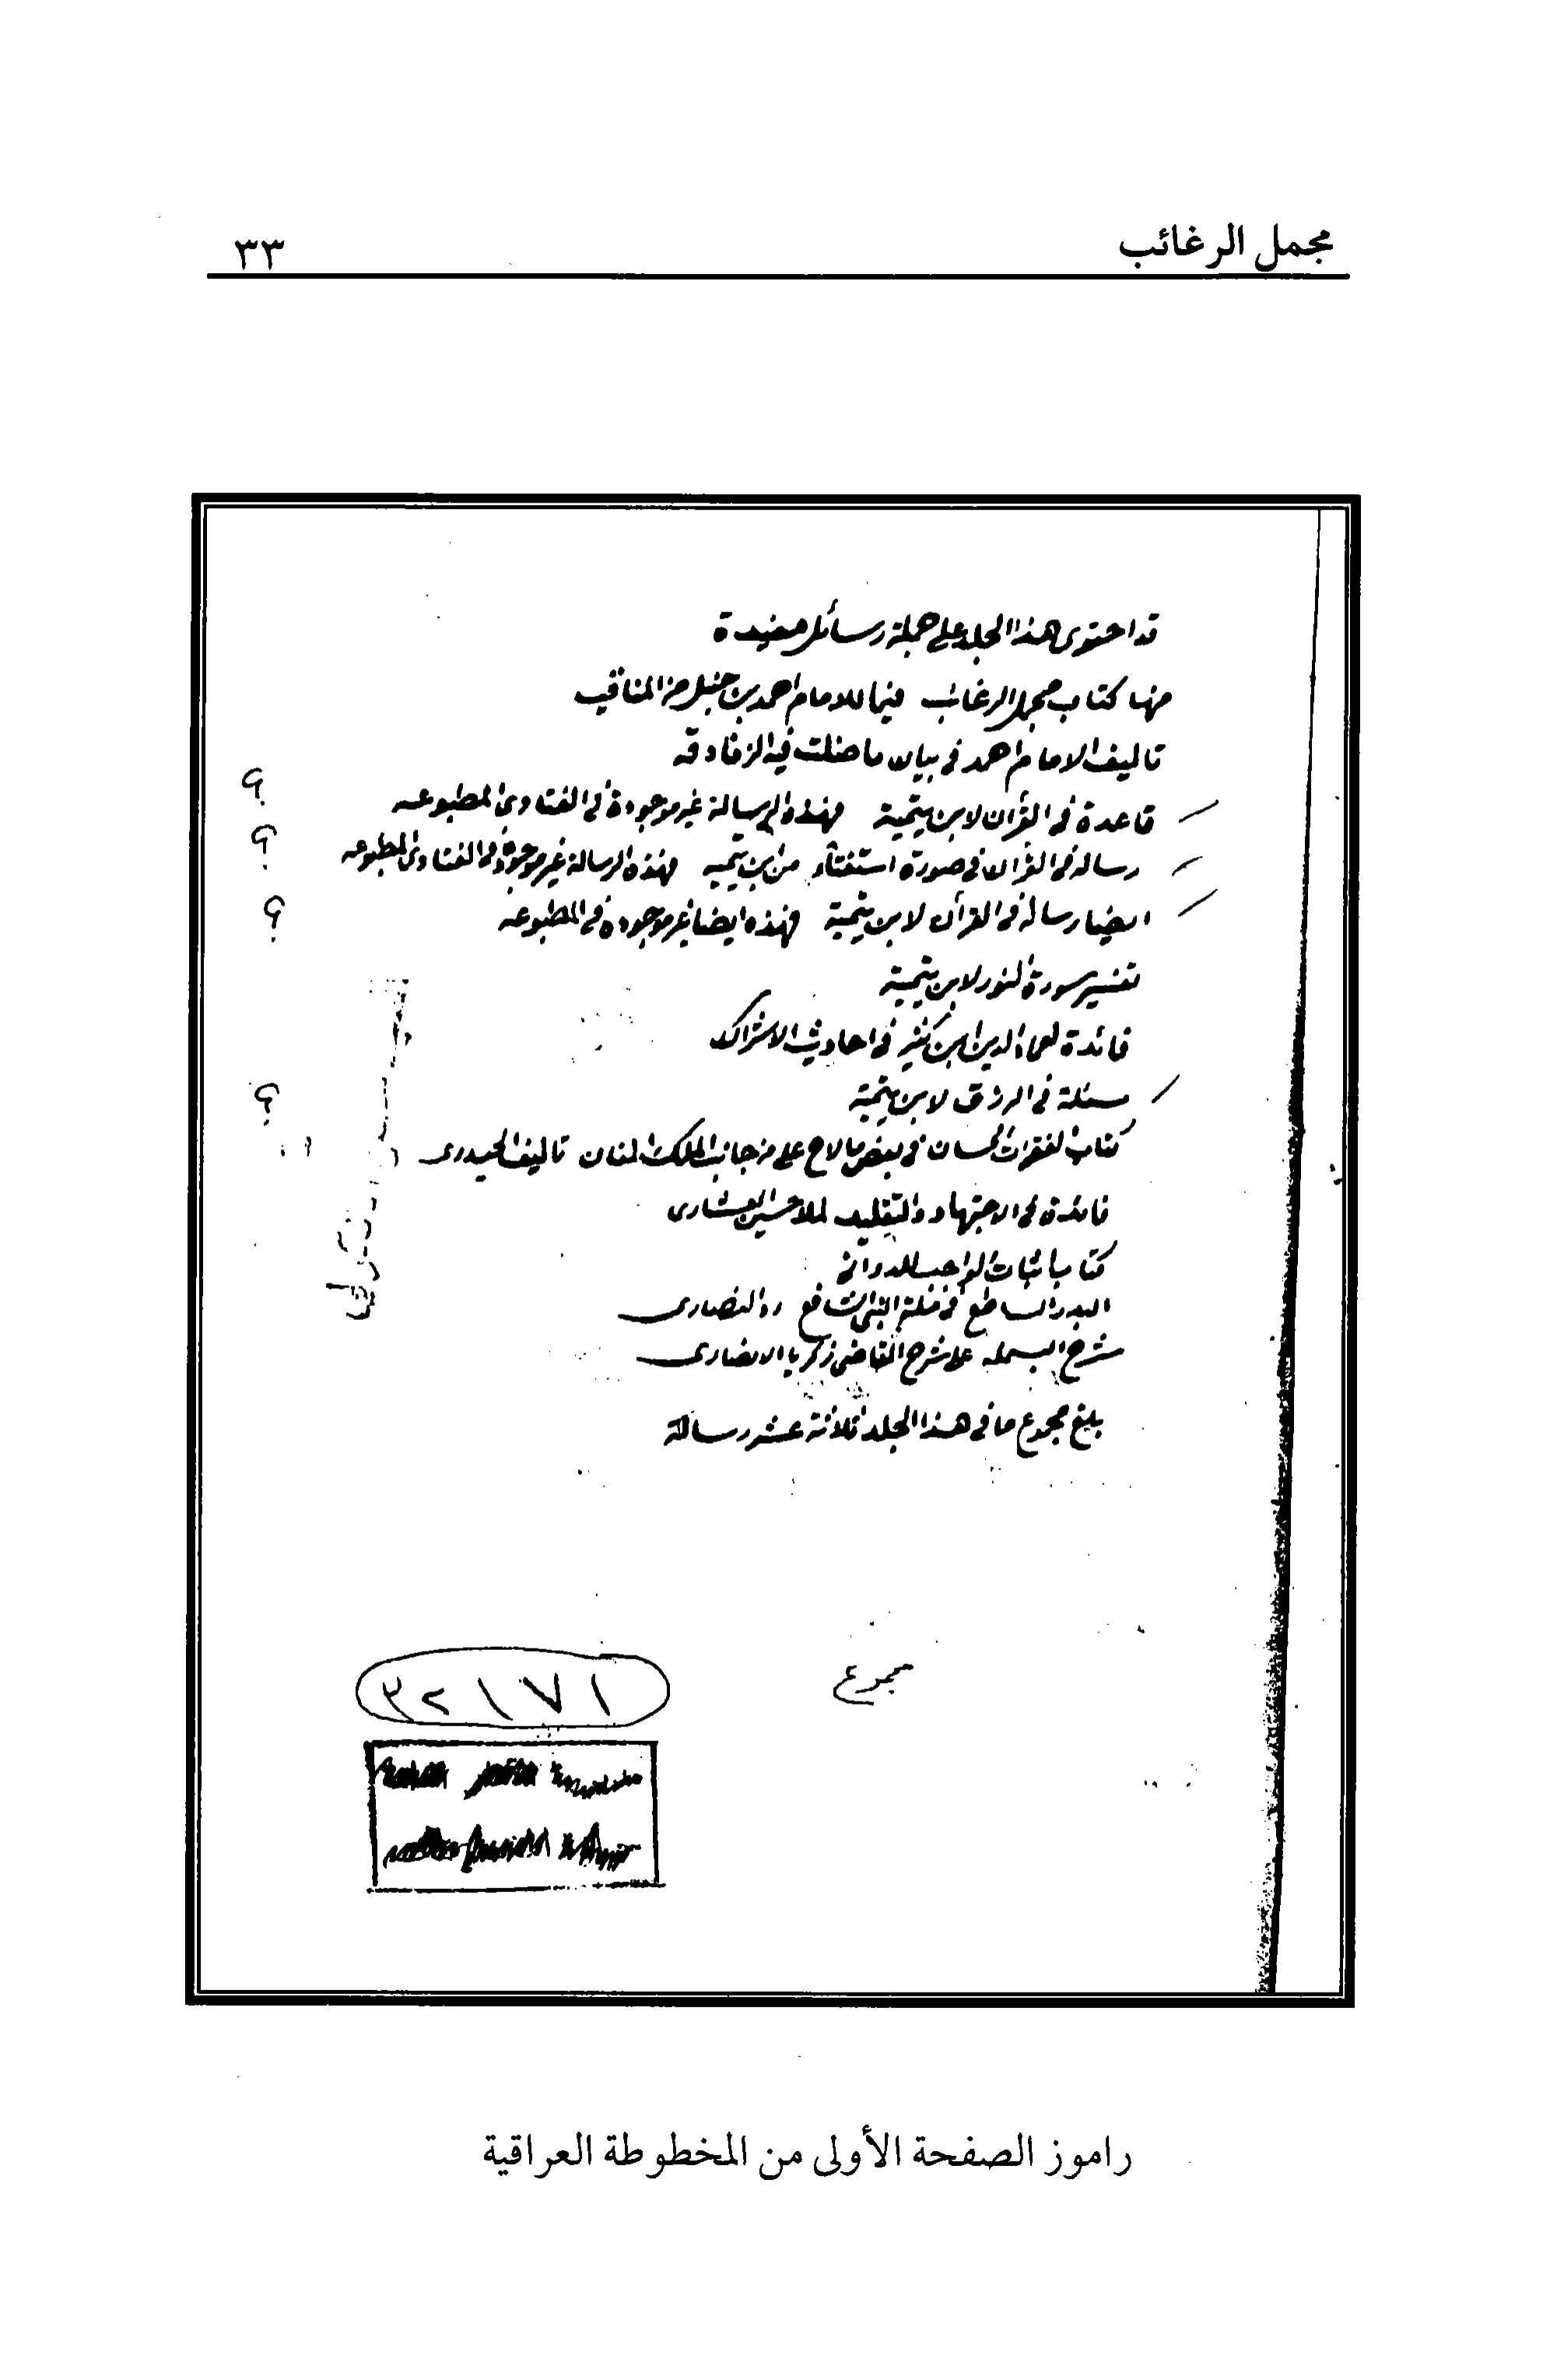 مجمل الرغائب
٣٣
قد احتوى هذا المجلد على جملة رسائل مفيدة
منها كتاب مجمل الرغائب فيما للامام احمد بن حنبل من المناقب
تاليف الامام احمد في بيان ما ضلت فيه الزنادقه
قاعدة في القرآن لابن تيمية فهذه الرسالة غير موجودة في الفتاوى المطبوعه ؟
رساله في القرآن في صورة استفتاء من ابن تيميه فهذه الرسالة غير موجودة في الفتاوى المطبوعه ؟
ايضا رسالة في القرآن لابن تيمية فهذه ايضا غير موجودة في المطبوعه ؟
تفسير سورة النور لابن تيمية
فائدة لعماد الدين ابن كثير في احاديث الاشراك
مسئلة في الرزق لابن تيمية ؟
كتاب الفقرات الحسان في بعض مالاح علي من جانب الملك المنان تاليف الحيدرى
فائدة في الاجتهاد والتقليد لملا حسين العشارى
كتاب اثبات الواجب للدوانى
البدر الساطع في فضلة النبي الشافع رد النصارى
شرح البسمله على شرح القاضى زكريا الانصارى
بلغ مجموع ما في هذا المجلد ثلاثة عشر رسالة
مجموع
٣٢١٧١
راموز الصفحة الأولى من المخطوطة العراقية